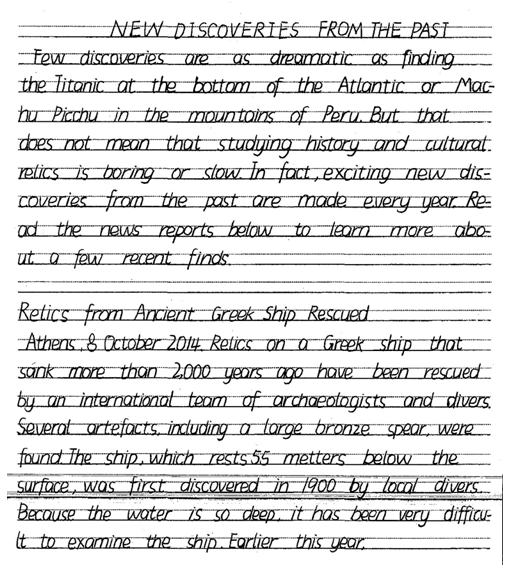 NEW DISCOVERIES FROM THE PAST
Few discoveries are as dreamatic as finding
the Titanic at the bottom of the Atlantic or Mac-
hu Picchu in the mountains of Peru. But that
does not mean that studying history and cultural
relics is boring or slow. In fact, exciting new dis-
coveries from the past are made every year. Re-
ad the news reports below to learn more abo-
ut a few recent finds.
Relics from Ancient Greek Ship Rescued
Athens, 8 October 2014. Relics on a Greek ship that
sank more than 2,000 years ago have been rescued
by an international team of archaeologists and divers.
Several artefacts, including a large bronze spear, were
found. The ship, which rests 55 metters below the
surface, was first discovered in 1900 by local divers.
Because the water is so deep, it has been very difficu-
lt to examine the ship. Earlier this year,